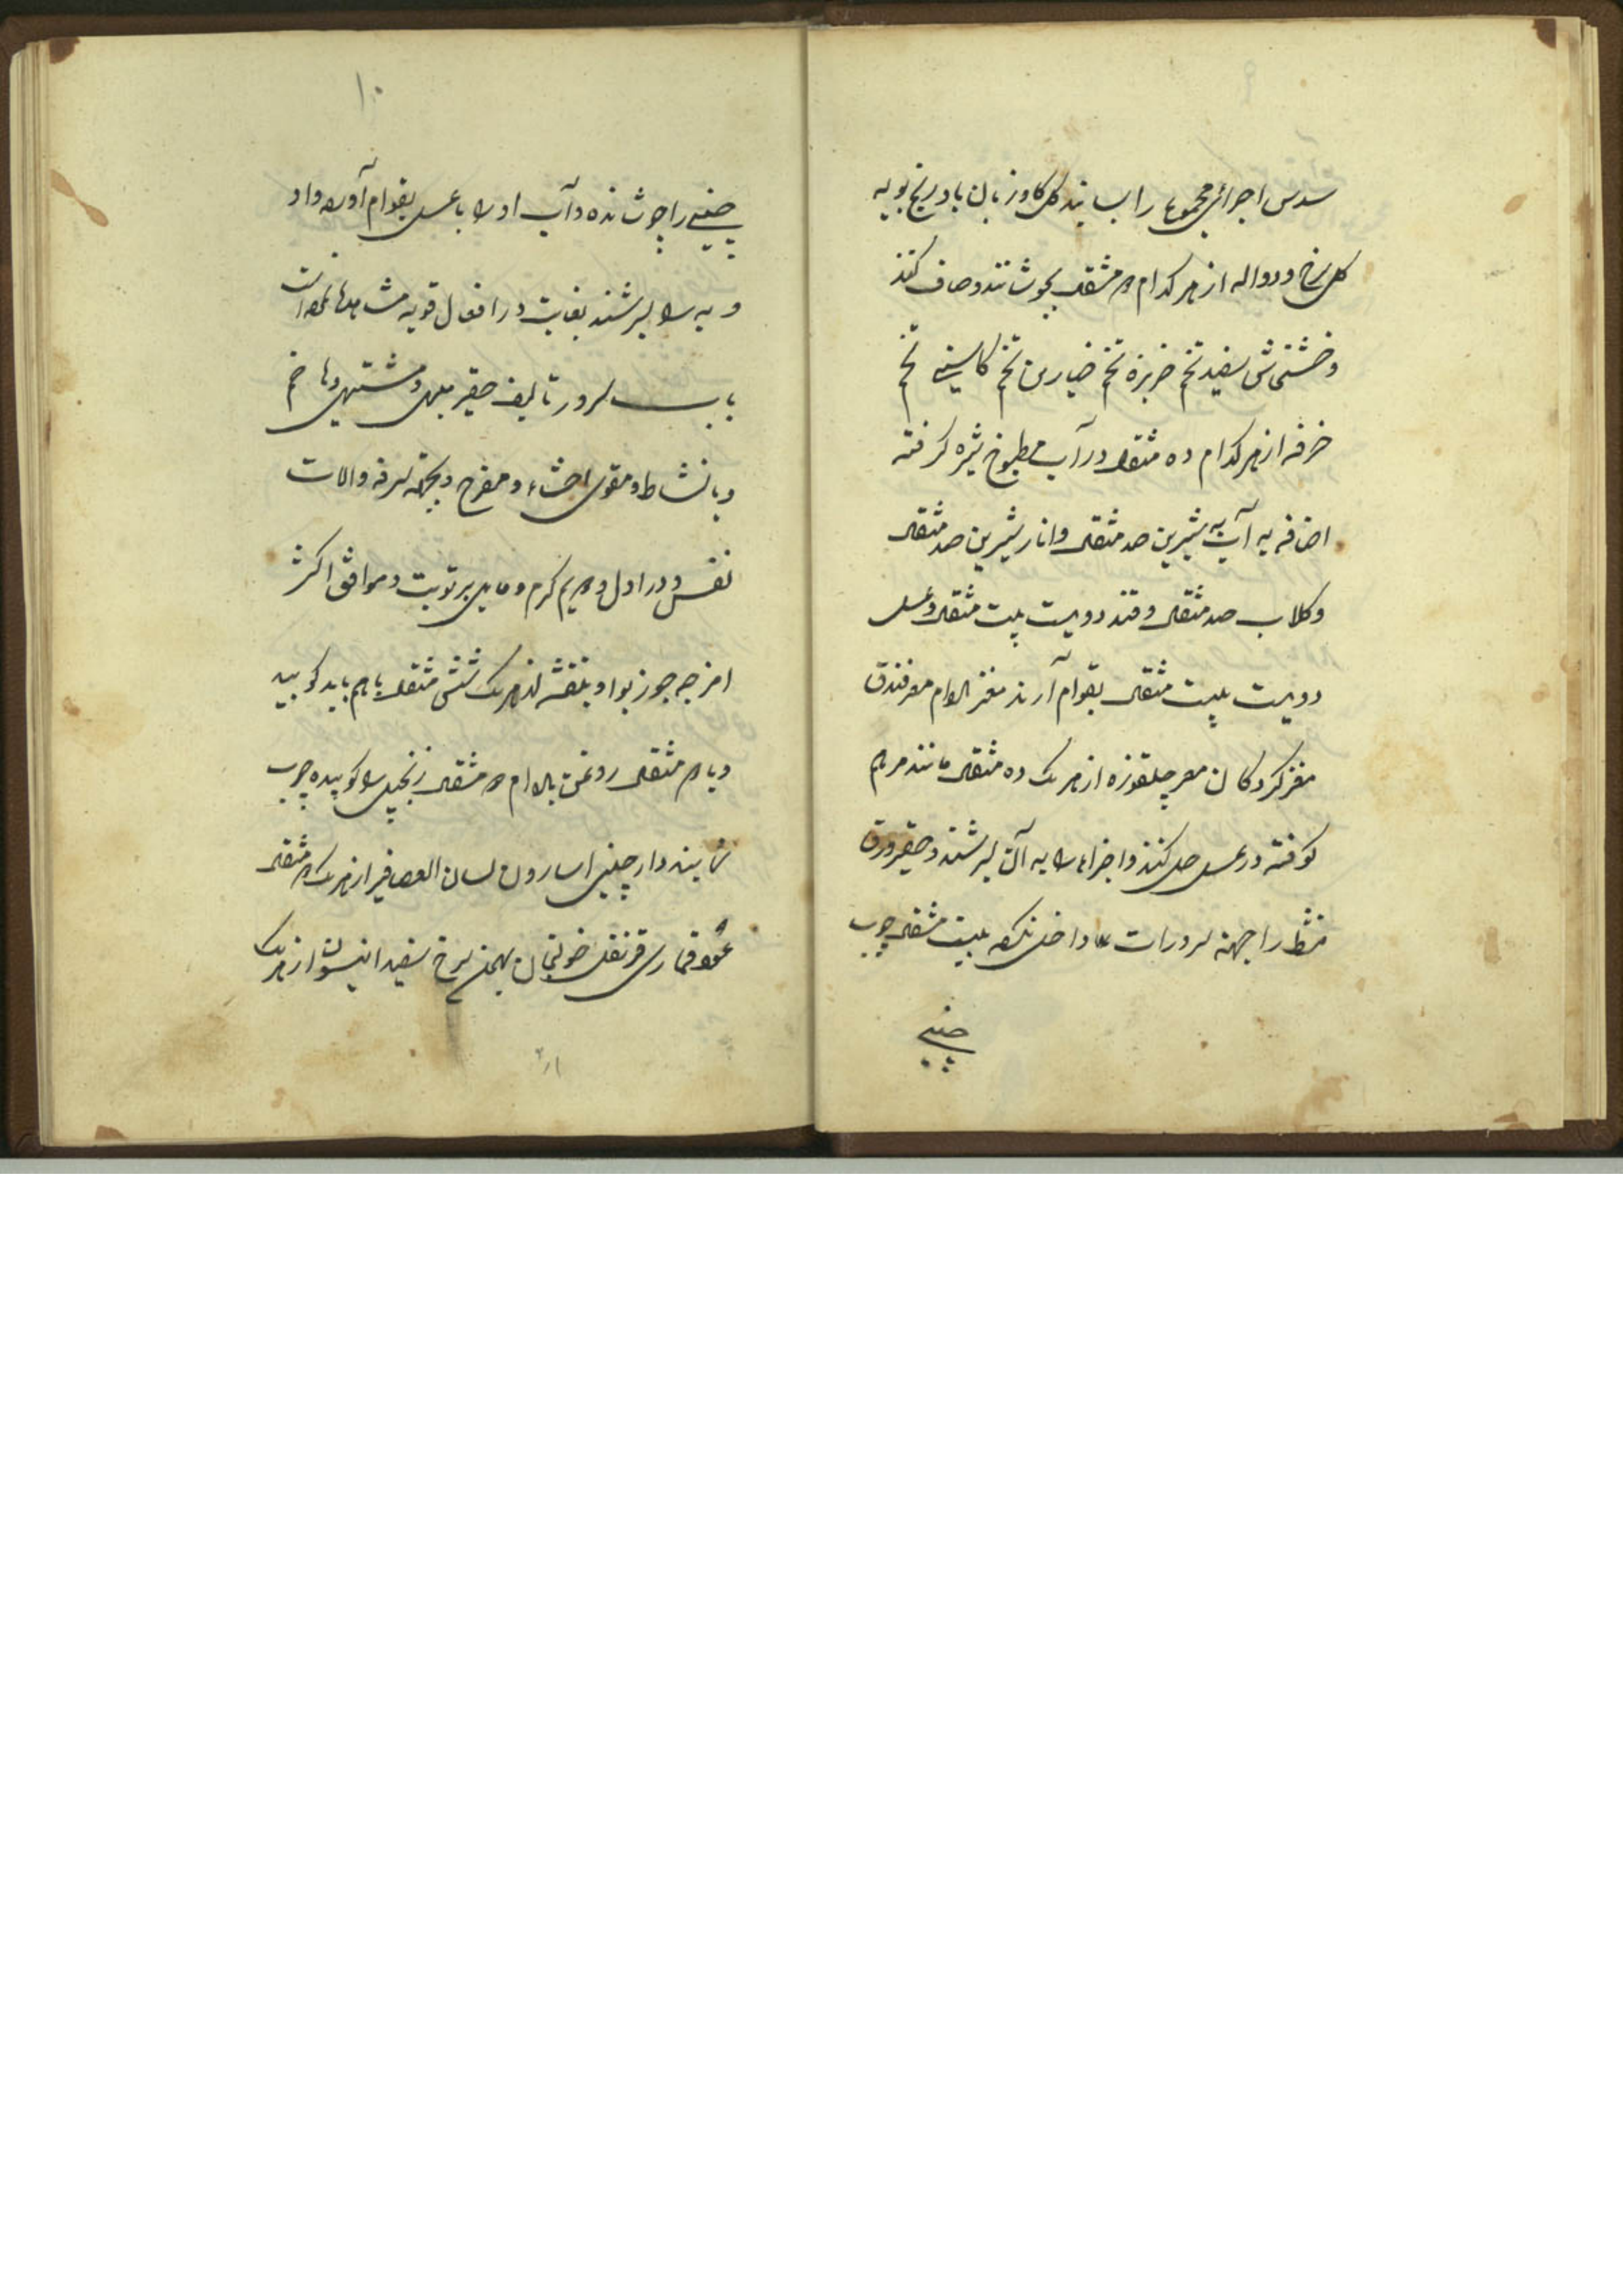 ۹
سدس اجزای مجموع را بسایند گل گاوزبان بادرنجبویه
گل سرخ و دواله از هر کدام ۵ مثقال بجوشانند و صاف کنند
و خشخاش سفید تخم خربزه تخم خیارین تخم کاسنی تخم
خرفه از هر کدام ده مثقال در آب مطبوخ شیره گرفته
اضافه به آب به شیرین صد مثقال و انار شیرین صد مثقال
و گلاب صد مثقال و قند دویست بیست مثقال و عسل
دویست بیست مثقال بقوام آرند مغز بادام مغز فندق
مغز گردکان مغز چلغوزه از هر یک ده مثقال مانند مرهم
کوفته در عسل حل کنند و اجزاء را به آن بسرشند و حقیر ورق
را جهته سرورات داخل نکرده بیست مثقال چوب
چینی
۱۰
چینی را جوشانده و آب او را با عسل بقوام آورده و ادویه را بسرشند بغایت در افعال قویه مشاهده
باب سرور تالیف حقیر مبهی و مشتهی و هاضم
و با نشاط و مقوی احشاء و مفرح و بجهته سرفه و الات
نفس و در اول دویم گرم و مایل برتوبت و موافق اکثر
امزجه جوز بوا و بنفشه از هر یک شش مثقال با هم باید کوبید
و با ۵ مثقال روغن بادام ۵ مثقال زنجبیل را کوبیده چرب
نمایند دارچینی اسارون لسان العصافیر از هر یک ۵ مثقال
عود قماری قرنفل خولنجان بهمن سرخ سفید انیسون از هر یک